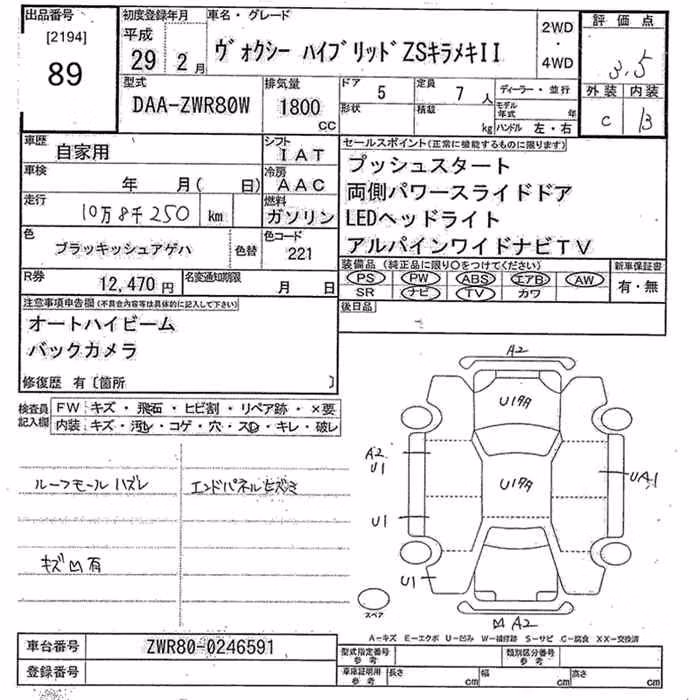 出品番号
[2194]
89
初度登録年月
平成
29 2 月
車名・グレード
ヴォクシー ハイブリッドZSキラメキII
2WD
・
4WD
評価点
3.5
外装 内装
C B
型式
DAA-ZWR80W
排気量
1800
cc
ドア 5
形状
定員 7 人
積載 kg
ディーラー・並行
モデル年式 年
ハンドル 左・右
車歴
自家用
シフト
IAT
車検
年 月( 日)
冷房
AAC
走行
10万8千250 km
燃料
ガソリン
色
ブラッキッシュアゲハ
色替
色コード
221
R券
12,470 円
名変通知期限
月 日
セールスポイント(正常に機能するものに限ります)
プッシュスタート
両側パワースライドドア
LEDヘッドライト
アルパインワイドナビTV
装備品 (純正品に限り○をつけてください)
PS PW ABS エアB AW
SR ナビ TV カワ
新車保証書
有・無
後日品
注意事項申告欄(不具合内容等は具体的に記入して下さい)
オートハイビーム
バックカメラ
修復歴 有〔箇所 〕
検査員
記入欄
FW キズ・飛石・ヒビ割・リペア跡・×要
内装 キズ・汚レ・コゲ・穴・スレ・キレ・破レ
ルーフモールハズレ
エンドパネルヒズミ
キズ凹有
A2
U17A
A2
U1
U17A
UA1
U1
U1
スペア
凹A2
A-キズ E-エクボ U-凹み W-補修跡 S-サビ C-腐食 XX-交換済
車台番号
ZWR80-0246591
登録番号
型式指定番号
参考
類別区分番号
参考
車庫証明用
参考
長さ cm
幅 cm
高さ cm